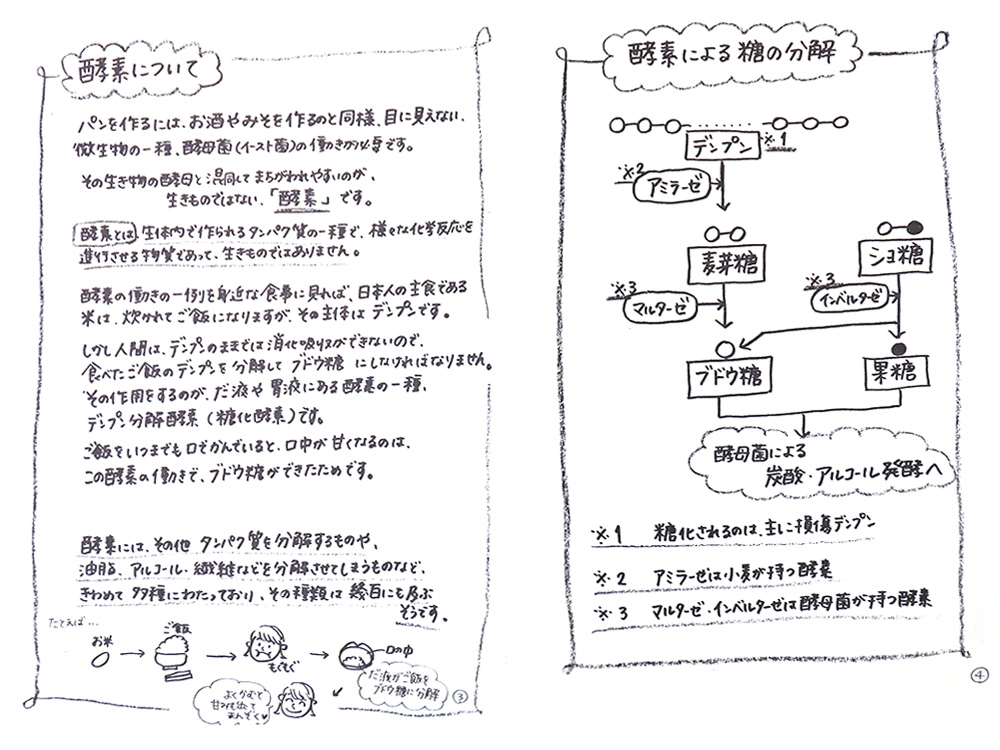 酵素について
パンを作るには、お酒やみそを作るのと同様、目に見えない、
微生物の一種、酵母菌(イースト菌)の働きが必要です。
その生き物の酵母と混同してまちがわれやすいのが、
生きものではない、「酵素」です。
酵素とは、生体内で作られるタンパク質の一種で、様々な化学反応を
進行させる物質であって、生きものではありません。
酵素の働きの一例を身近な食事に見れば、日本人の主食である
米は、炊かれてご飯になりますが、その主体はデンプンです。
しかし人間は、デンプンのままでは消化吸収ができないので、
食べたご飯のデンプンを分解してブドウ糖にしなければなりません。
その作用をするのが、だ液や胃液にある酵素の一種、
デンプン分解酵素(糖化酵素)です。
ご飯をいつまでも口でかんでいると、口中が甘くなるのは、
この酵素の働きで、ブドウ糖ができたためです。
酵素には、その他タンパク質を分解するものや、
油脂、アルコール・繊維などを分解させてしまうものなど、
きわめて多種にわたっており、その種類は幾百にも及ぶ
そうです。
たとえば…
お米
ご飯
もぐもぐ
口の中
だ液がご飯を
ブドウ糖に分解
よくかむと
甘みも出て
まんぞく
③
酵素による糖の分解
デンプン
※1
※2
アミラーゼ
麦芽糖
ショ糖
※3
マルターゼ
※3
インベルターゼ
ブドウ糖
果糖
酵母菌による
炭酸・アルコール発酵へ
※1 糖化されるのは、主に損傷デンプン
※2 アミラーゼは小麦が持つ酵素
※3 マルターゼ・インベルターゼは酵母菌が持つ酵素
④